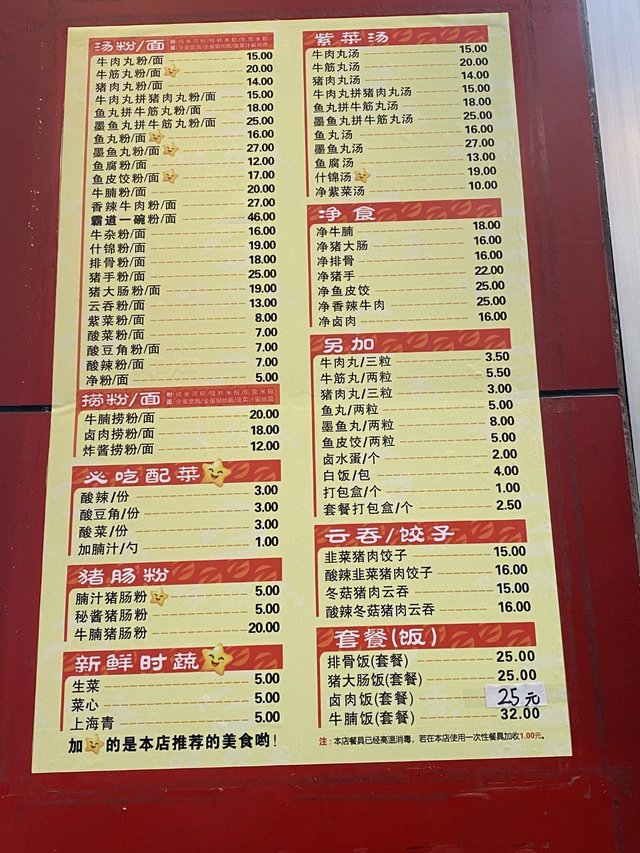 汤粉/面
粉:纯米河粉/桂林米粉/东莞米粉
面:全蛋银面/全蛋银丝面/菠菜汁银丝面
牛肉丸粉/面 15.00
牛筋丸粉/面 20.00
猪肉丸粉/面 14.00
牛肉丸拼猪肉丸粉/面 15.00
鱼丸拼牛筋丸粉/面 18.00
墨鱼丸拼牛筋丸粉/面 25.00
鱼丸粉/面 16.00
墨鱼丸粉/面 27.00
鱼腐粉/面 12.00
鱼皮饺粉/面 17.00
牛腩粉/面 20.00
香辣牛肉粉/面 27.00
霸道一碗粉/面 46.00
牛杂粉/面 16.00
什锦粉/面 19.00
排骨粉/面 18.00
猪手粉/面 25.00
猪大肠粉/面 19.00
云吞粉/面 13.00
紫菜粉/面 8.00
酸菜粉/面 7.00
酸豆角粉/面 7.00
酸辣粉/面 7.00
净粉/面 5.00
捞粉/面
牛腩捞粉/面 20.00
卤肉捞粉/面 18.00
炸酱捞粉/面 12.00
必吃配菜
酸辣/份 3.00
酸豆角/份 3.00
酸菜/份 3.00
加腩汁/勺 1.00
猪肠粉
腩汁猪肠粉 5.00
秘酱猪肠粉 5.00
牛腩猪肠粉 20.00
新鲜时蔬
生菜 5.00
菜心 5.00
上海青 5.00
加 的是本店推荐的美食哟!
紫菜汤
牛肉丸汤 15.00
牛筋丸汤 20.00
猪肉丸汤 14.00
牛肉丸拼猪肉丸汤 15.00
鱼丸拼牛筋丸汤 18.00
墨鱼丸拼牛筋丸汤 25.00
鱼丸汤 16.00
墨鱼丸汤 27.00
鱼腐汤 13.00
什锦汤 19.00
净紫菜汤 10.00
净食
净牛腩 18.00
净猪大肠 16.00
净排骨 16.00
净猪手 22.00
净鱼皮饺 25.00
净香辣牛肉 25.00
净卤肉 16.00
另加
牛肉丸/三粒 3.50
牛筋丸/两粒 5.50
猪肉丸/三粒 3.00
鱼丸/两粒 5.00
墨鱼丸/两粒 8.00
鱼皮饺/两粒 5.00
卤水蛋/个 2.00
白饭/包 4.00
打包盒/个 1.00
套餐打包盒/个 2.50
云吞/饺子
韭菜猪肉饺子 15.00
酸辣韭菜猪肉饺子 16.00
冬菇猪肉云吞 15.00
酸辣冬菇猪肉云吞 16.00
套餐(饭)
排骨饭(套餐) 25.00
猪大肠饭(套餐) 25.00
卤肉饭(套餐) 25元
牛腩饭(套餐) 32.00
注:本店餐具已经高温消毒,若在本店使用一次性餐具加收1.00元。